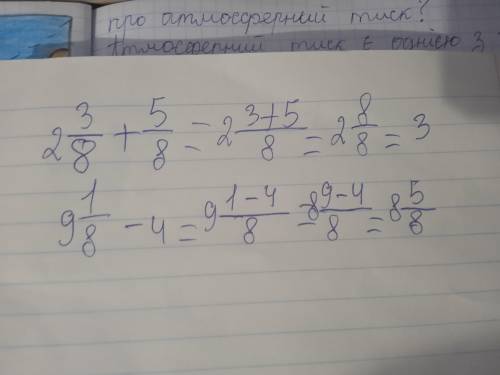 про атмосферний тиск?
Атмосферний тиск є однією з
2 3/8 + 5/8 = 2 3+5/8 = 2 8/8 = 3
9 1/8 - 4 = 9 1-4/8 = 8 9-4/8 = 8 5/8